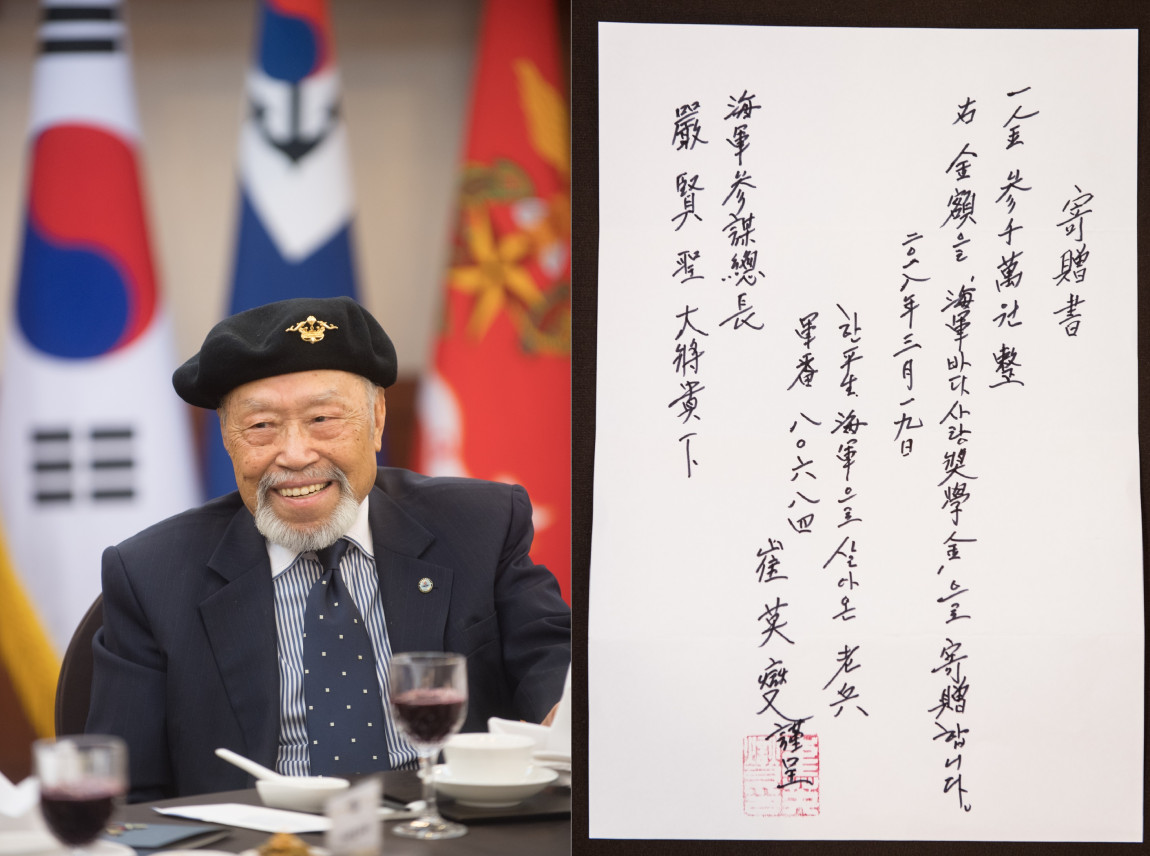 寄贈書
一金 參千萬원 整
右 金額을 '海軍바다사랑奬學金'으로 寄贈합니다.
二〇一八年 三月 一九日
한平生 海軍으로 살아온 老兵
軍番 八〇六八四
崔英燮 謹呈
海軍參謀總長
嚴賢聖 大將 貴下